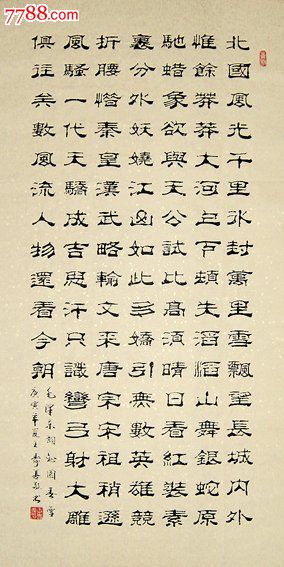 7788.com
北國風光千里冰封萬里雪飄望長城內外
惟餘莽莽大河上下頓失滔滔山舞銀蛇原
馳蜡象欲與天公試比高須晴日看紅裝素
裹分外妖嬈江山如此多嬌引無數英雄競
折腰惜秦皇漢武略輸文采唐宗宋祖稍遜
風騷一代天驕成吉思汗只識彎弓射大雕
俱往矣數風流人物還看今朝
毛澤東詞沁園春雪
庚寅年夏